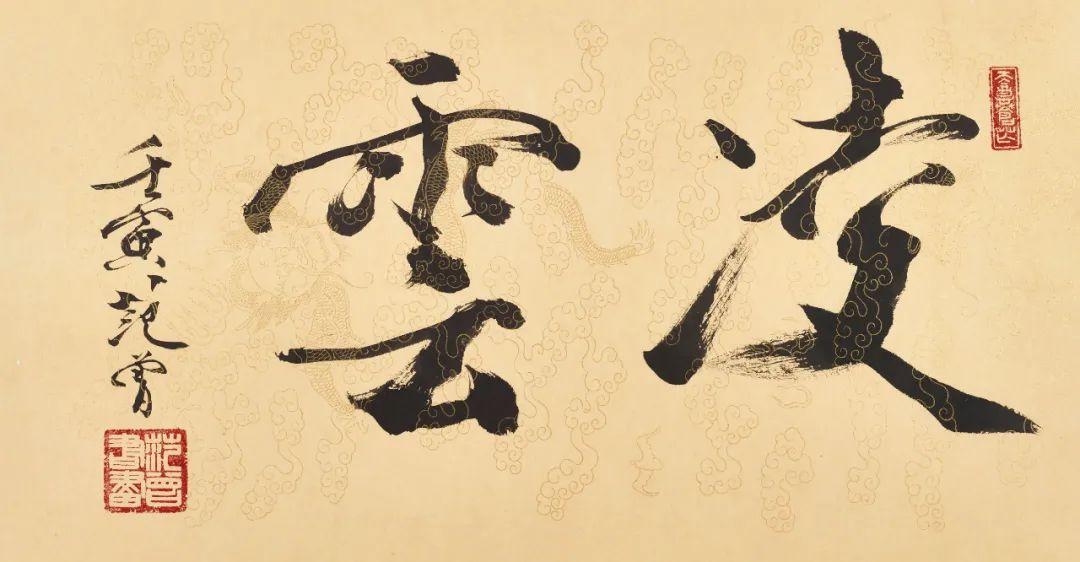 凌雲
壬寅范曾
范曾書畫